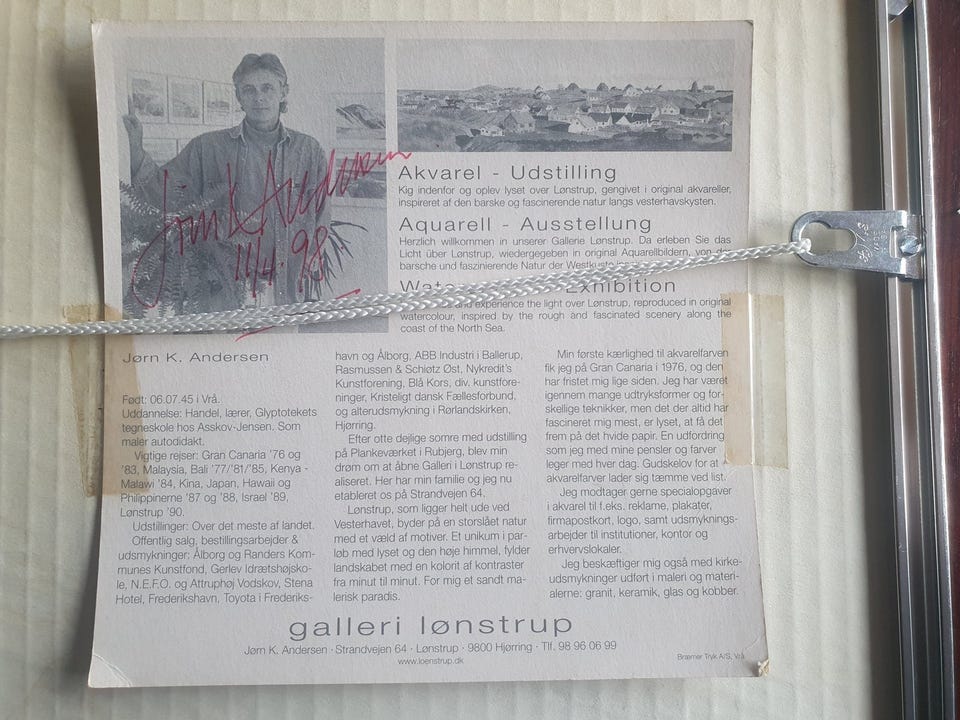 Jørn K Andersen
11/4. 98
Akvarel - Udstilling
Kig indenfor og oplev lyset over Lønstrup, gengivet i original akvareller,
inspireret af den barske og fascinerende natur langs vesterhavskysten.
Aquarell - Ausstellung
Herzlich willkommen in unserer Gallerie Lønstrup. Da erleben Sie das
Licht über Lønstrup, wiedergegeben in original Aquarellbildern, von der
barsche und faszinierende Natur der
Exhibition
and experience the light over Lønstrup, reproduced in original
watercolour, inspired by the rough and fascinated scenery along the
coast of the North Sea.
Jørn K. Andersen
Født: 06.07.45 i Vrå.
Uddannelse: Handel, lærer, Glyptotekets
tegneskole hos Asskov-Jensen. Som
maler autodidakt.
Vigtige rejser: Gran Canaria '76 og
'83, Malaysia, Bali '77/'81/'85, Kenya -
Malawi '84, Kina, Japan, Hawaii og
Philippinerne '87 og '88, Israel '89,
Lønstrup '90.
Udstillinger: Over det meste af landet.
Offentlig salg, bestillingsarbejder &
udsmykninger: Ålborg og Randers Kom-
munes Kunstfond, Gerlev Idrætshøjsko-
le, N.E.F.O. og Attruphøj Vodskov, Stena
Hotel, Frederikshavn, Toyota i Frederiks-
havn og Ålborg, ABB Industri i Ballerup,
Rasmussen & Schiøtz Øst, Nykredit's
Kunstforening, Blå Kors, div. kunstfore-
ninger, Kristeligt dansk Fællesforbund,
og alterudsmykning i Rørlandskirken,
Hjørring.
Efter otte dejlige somre med udstilling
på Plankeværket i Rubjerg, blev min
drøm om at åbne Galleri i Lønstrup re-
aliseret. Her har min familie og jeg nu
etableret os på Strandvejen 64.
Lønstrup, som ligger helt ude ved
Vesterhavet, byder på en storslået natur
med et væld af motiver. Et unikum i par-
løb med lyset og den høje himmel, fylder
landskabet med en kolorit af kontraster
fra minut til minut. For mig et sandt ma-
lerisk paradis.
Min første kærlighed til akvarelfarven
fik jeg på Gran Canaria i 1976, og den
har fristet mig lige siden. Jeg har været
igennem mange udtryksformer og for-
skellige teknikker, men det der altid har
fascineret mig mest, er lyset, at få det
frem på det hvide papir. En udfordring
som jeg med mine pensler og farver
leger med hver dag. Gudskelov for at
akvarelfarver lader sig tæmme ved list.
Jeg modtager gerne specialopgaver
i akvarel til f.eks. reklame, plakater,
firmapostkort, logo, samt udsmyknings-
arbejder til institutioner, kontor og
erhvervslokaler.
Jeg beskæftiger mig også med kirke-
udsmykninger udført i maleri og materi-
alerne: granit, keramik, glas og kobber.
galleri lønstrup
Jørn K. Andersen · Strandvejen 64 · Lønstrup · 9800 Hjørring · Tlf. 98 96 06 99
www.loenstrup.dk
Bræmer Tryk A/S, Vrå